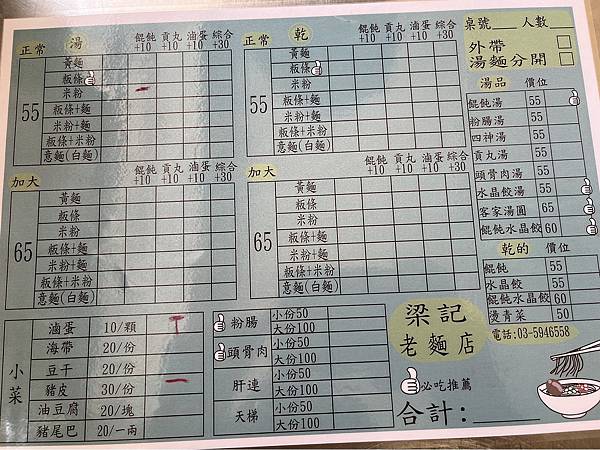 正常 湯 餛飩+10 貢丸+10 滷蛋+10 綜合+30
55
黃麵
粄條
米粉
粄條+麵
米粉+麵
粄條+米粉
意麵(白麵)
加大 餛飩+10 貢丸+10 滷蛋+10 綜合+30
65
黃麵
粄條
米粉
粄條+麵
米粉+麵
粄條+米粉
意麵(白麵)
正常 乾 餛飩+10 貢丸+10 滷蛋+10 綜合+30
55
黃麵
粄條
米粉
粄條+麵
米粉+麵
粄條+米粉
意麵(白麵)
加大 餛飩+10 貢丸+10 滷蛋+10 綜合+30
65
黃麵
粄條
米粉
粄條+麵
米粉+麵
粄條+米粉
意麵(白麵)
桌號 人數
外帶
湯麵分開
湯品 價位
餛飩湯 55
粉腸湯 55
四神湯 55
貢丸湯 55
頭骨肉湯 55
水晶餃湯 55
客家湯圓 65
餛飩水晶餃 60
乾的 價位
餛飩 55
水晶餃 55
餛飩水晶餃 60
燙青菜 50
小菜
滷蛋 10/顆
海帶 20/份
豆干 20/份
豬皮 30/份
油豆腐 20/塊
豬尾巴 20/一兩
粉腸 小份50
大份100
頭骨肉 小份50
大份100
肝連 小份50
大份100
天梯 小份50
大份100
梁記
老麵店
電話:03-5946558
必吃推薦
合計: